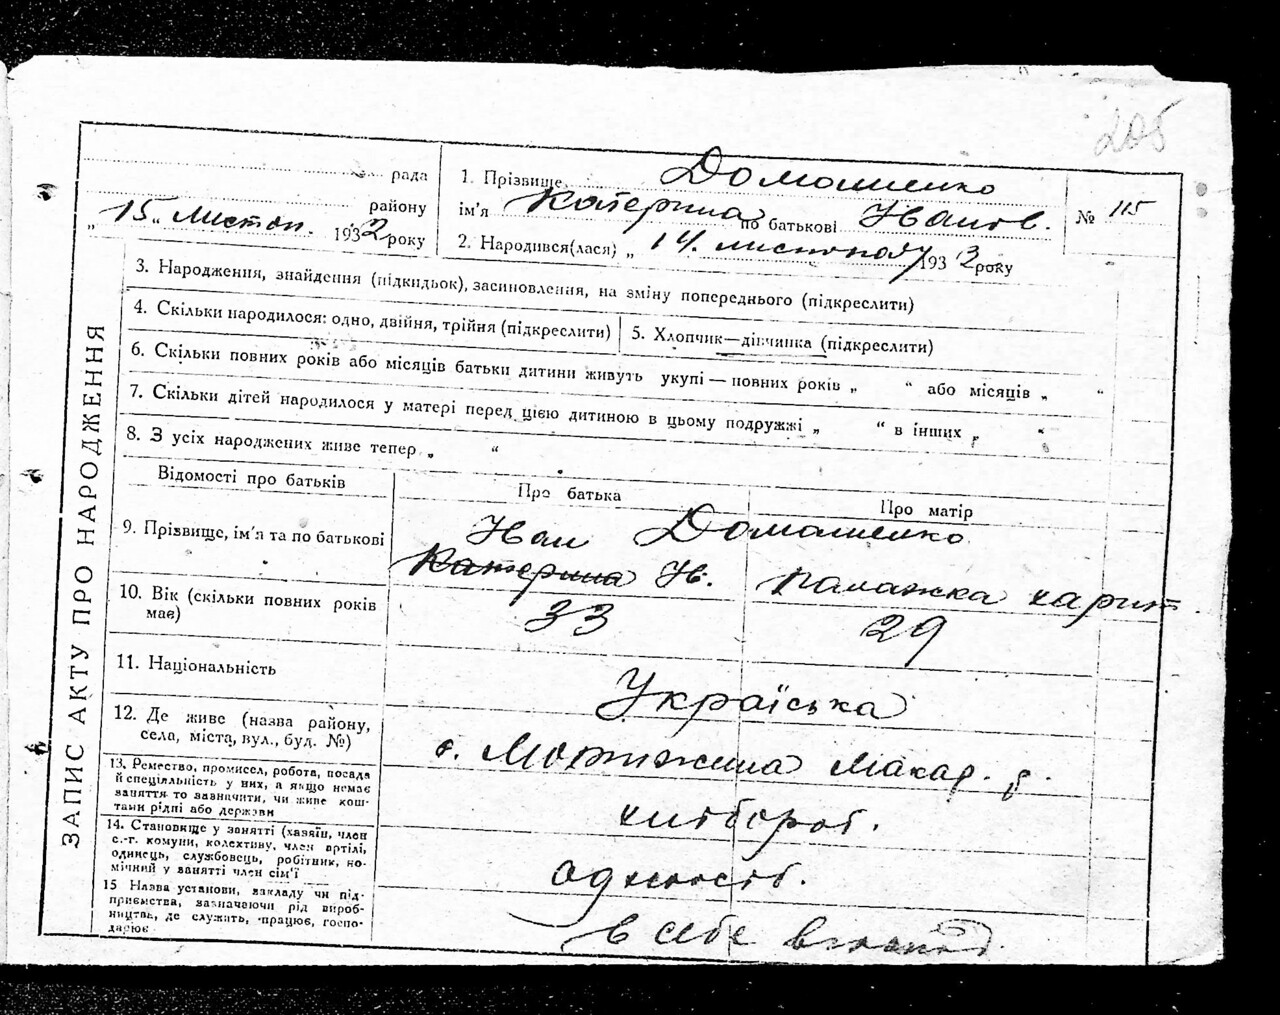 205
рада
району
"15" Листоп. 1932 року
1. Прізвище Домашенко
ім'я Катерина по батькові Іванов.
2. Народився(лася) "14" листопаду 1932 року
№ 115
ЗАПИС АКТУ ПРО НАРОДЖЕННЯ
3. Народження, знайдення (підкидьок), засиновлення, на зміну попереднього (підкреслити)
4. Скільки народилося: одно, двійня, трійня (підкреслити)
5. Хлопчик—дівчинка (підкреслити)
6. Скільки повних років або місяців батьки дитини живуть укупі — повних років „ “ або місяців „ “
7. Скільки дітей народилося у матері перед цією дитиною в цьому подружжі „ “ в інших „ “
8. З усіх народжених живе тепер „ “
Відомості про батьків
Про батька
Про матір
9. Прізвище, ім'я та по батькові
Іван Домашенко
Катерина Ів. Палажка Харит.
10. Вік (скільки повних років має)
33
29
11. Національність
Українська
12. Де живе (назва району, села, міста, вул., буд. №)
с. Мотижина Макар. р.
13. Ремество, промисел, робота, посада й спеціяльність у них, а якщо немає заняття то зазначити, чи живе коштами рідні або держави
хлібороб.
14. Становище у занятті (хазяїн, член с.-г. комуни, колективу, член артілі, одинець, службовець, робітник, комічний у занятті член сім'ї
одноосіб.
15 Назва установи, закладу чи підприємства, зазначаючи рід виробництва, де служать, працює, господарює
в себе в господ.